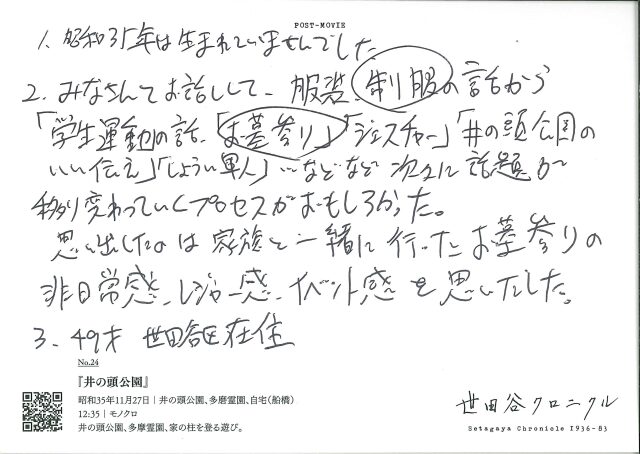 POST-MOVIE
1、昭和35年は生まれていませんでした
2、みなさんでお話しして、服装、制服の話から
「学生運動の話、「お墓参り」「ジェスチャー」「井の頭公園の
いい伝え」「しょうい軍人」…などなど 次々に話題が
移り変わっていくプロセスがおもしろかった。
思い出したのは家族と一緒に行ったお墓参りの
非日常感、レジャー感、イベント感を思いだした。
3、49才 世田谷区在住
No.24
『井の頭公園』
昭和35年11月27日｜井の頭公園、多磨霊園、自宅（船橋）
12:35｜モノクロ
井の頭公園、多摩霊園、家の柱を登る遊び。
世田谷クロニクル
Setagaya Chronicle 1936-83